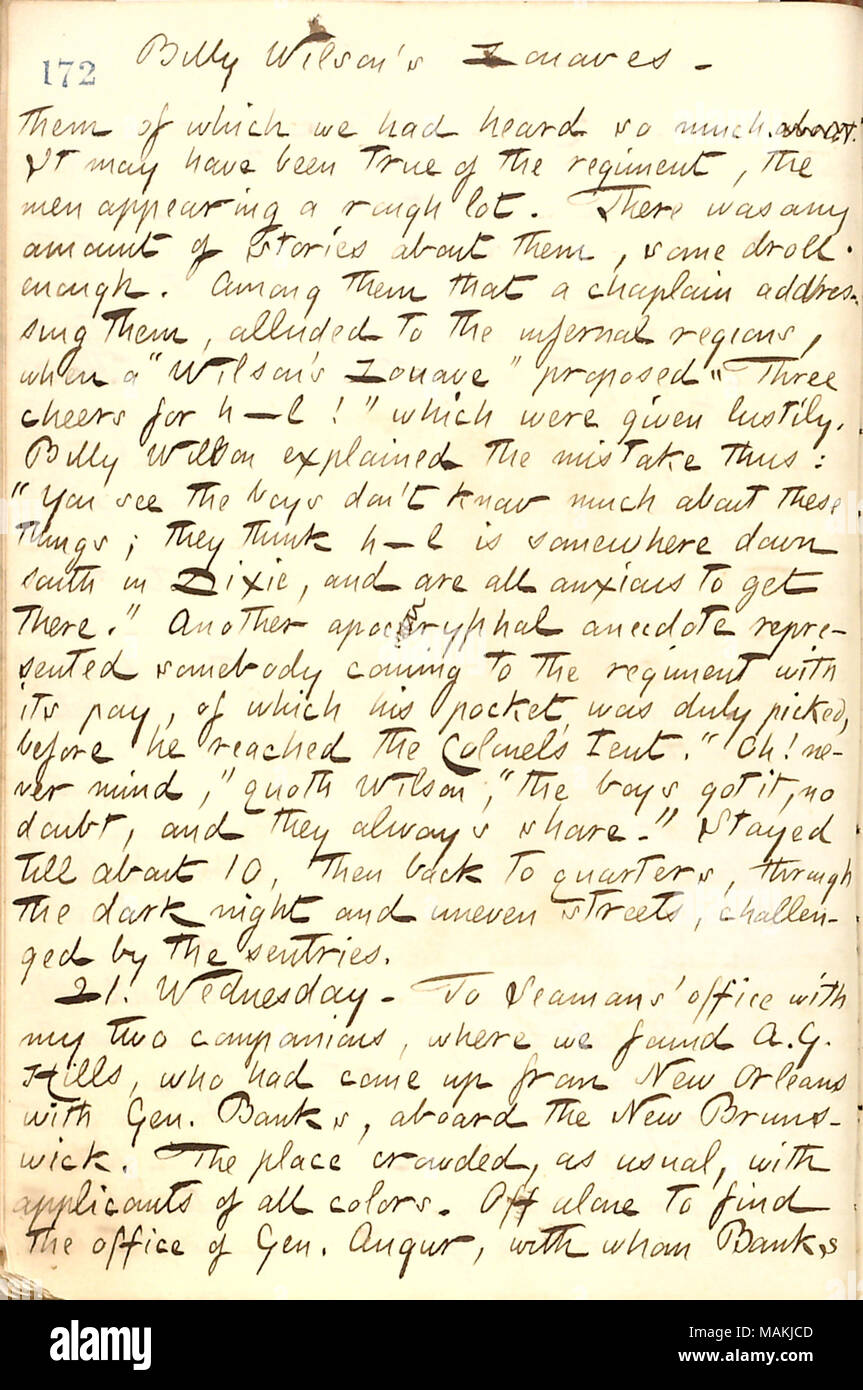 172
Billy Wilson's Zouaves -
them of which we had heard so much about.
It may have been true of the regiment, the
men appearing a rough lot. There was any
amount of stories about them, some droll
enough. Among them that a chaplain addres-
sing them, alluded to the infernal regions,
when a "Wilson's Zouave" proposed "Three
cheers for h—l!" which were given lustily.
Billy Wilson explained the mistake thus:
"You see the boys don't know much about these
things; they think h—l is somewhere down
south in Dixie, and are all anxious to get
there." Another apocryphal anecdote repre-
sented somebody coming to the regiment with
its pay, of which his pocket was duly picked,
before he reached the Colonel's tent. "Oh! ne-
ver mind," quoth Wilson, "the boys got it, no
doubt, and they always share." Stayed
till about 10, then back to quarters, through
the dark night and uneven streets, challen-
ged by the sentries.
21. Wednesday - To Seamans' office with
my two companions, where we found A.G.
Hills, who had come up from New Orleans
with Gen. Banks, aboard the New Bruns-
wick. The place crowded, as usual, with
applicants of all colors. Off alone to find
the office of Gen. Augur, with whom Banks
a alamy stock photo
alamy
Image ID: MAKJCD
www.alamy.com